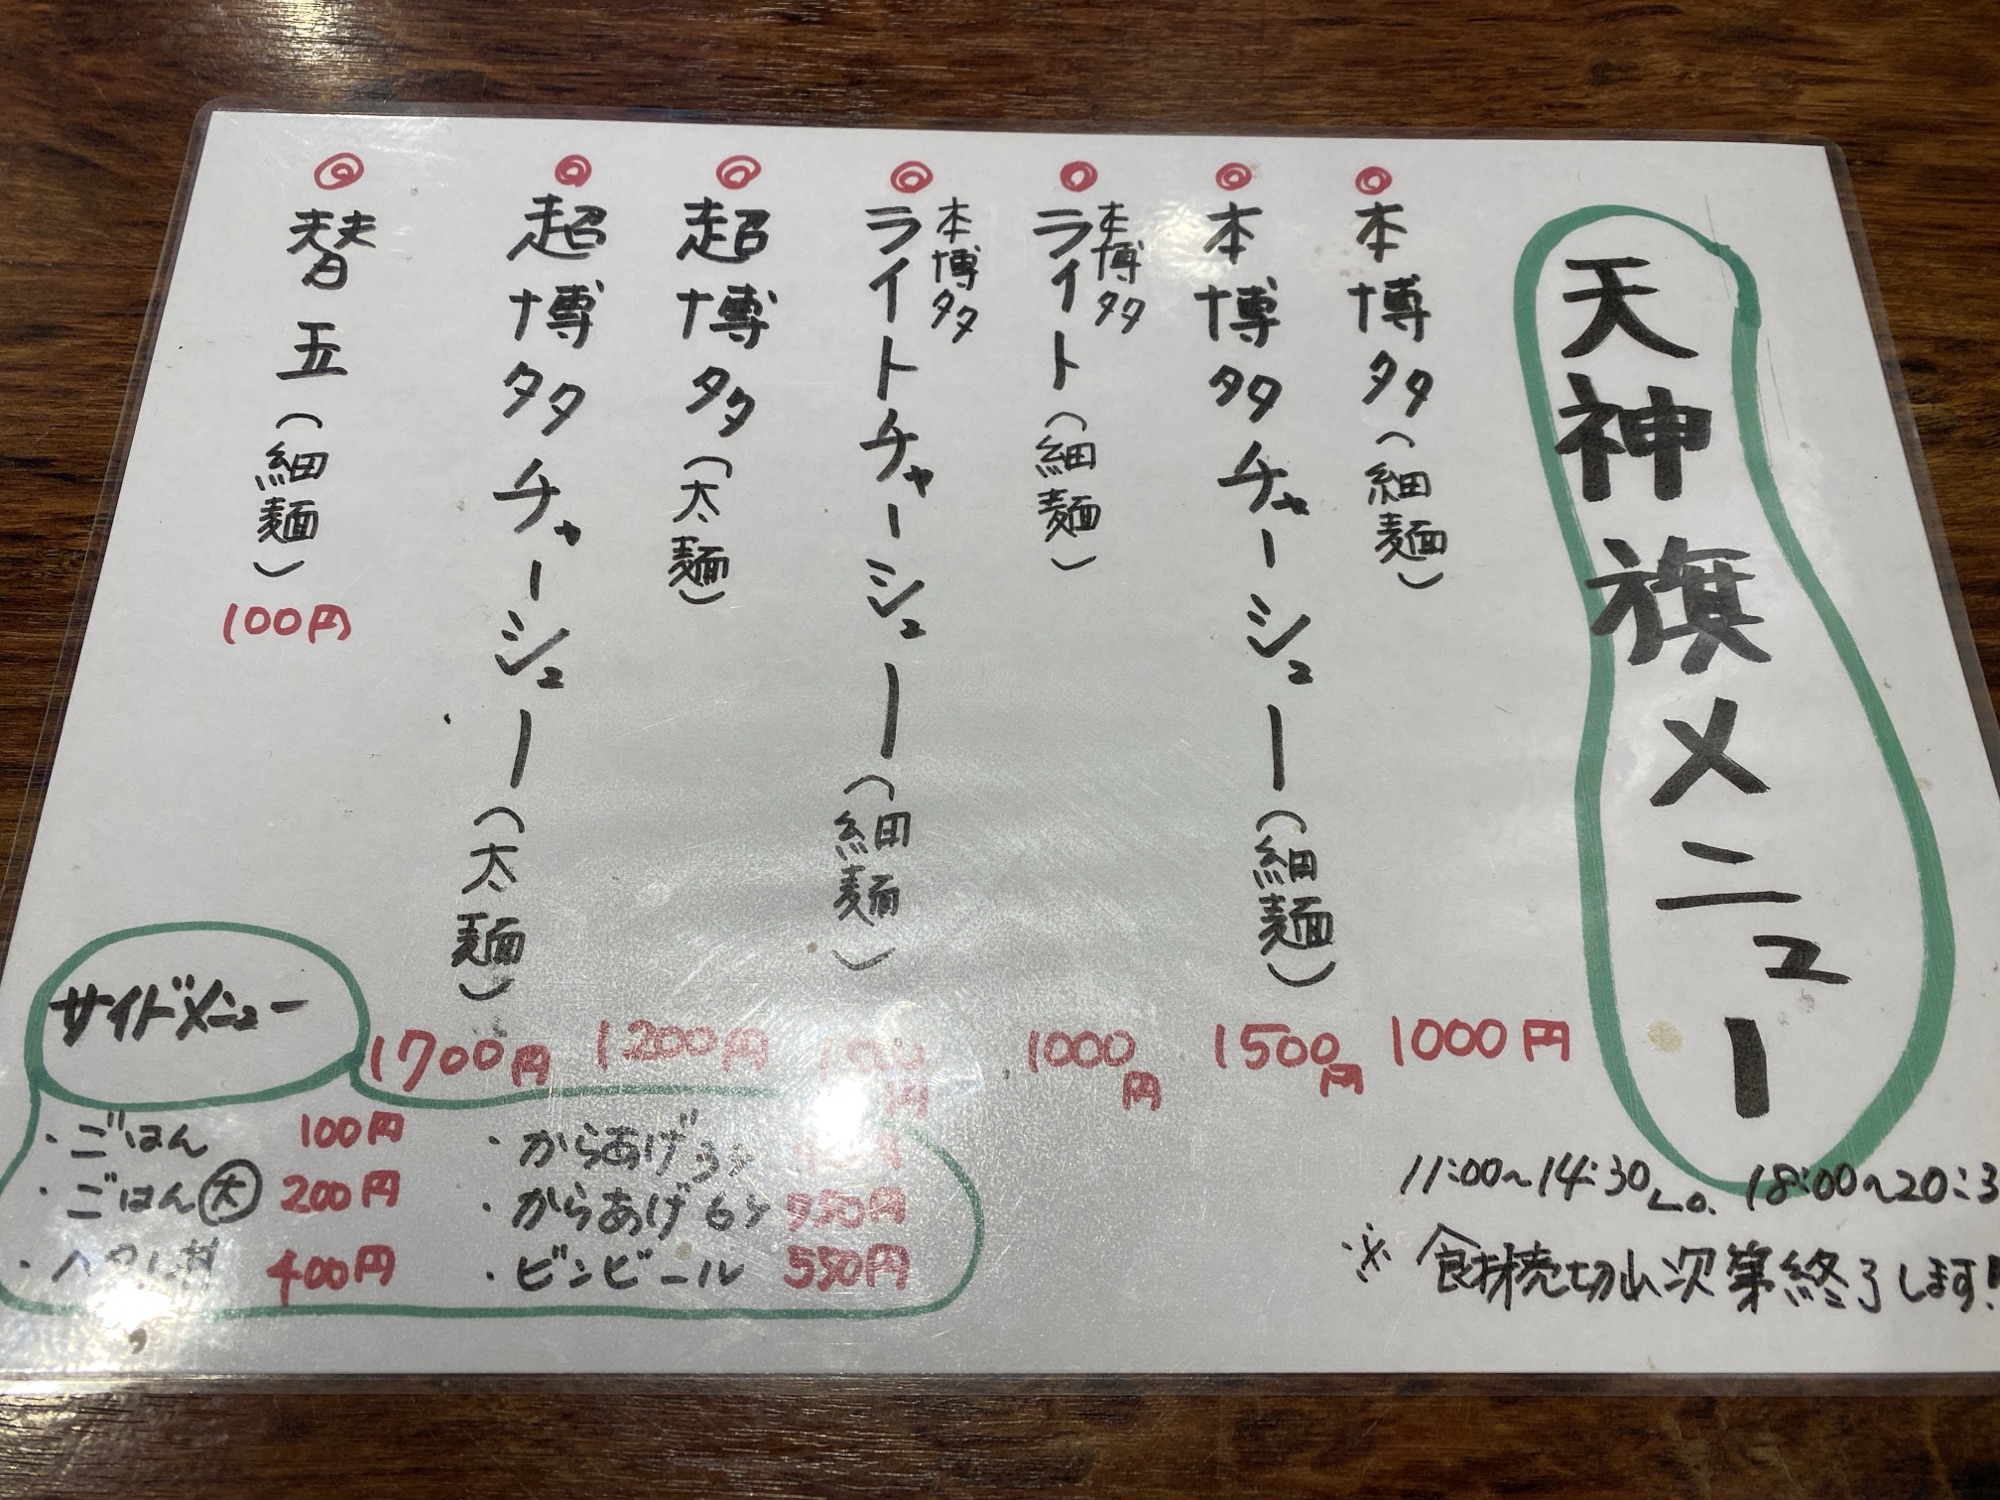 天神旗メニュー
◎本博多(細麺) 1000円
◎本博多チャーシュー(細麺) 1500円
◎本博多ライト(細麺) 1000円
◎本博多ライトチャーシュー(細麺) 円
◎超博多(太麺) 1200円
◎超博多チャーシュー(太麺) 1700円
◎替玉(細麺) 100円
サイドメニュー
・ごはん 100円
・ごはん(大) 200円
・丼 400円
・からあげ3ケ 円
・からあげ6ケ 950円
・ビンビール 550円
11:00~14:30L.O. 18:00~20:3
※食材売切れ次第終了します!